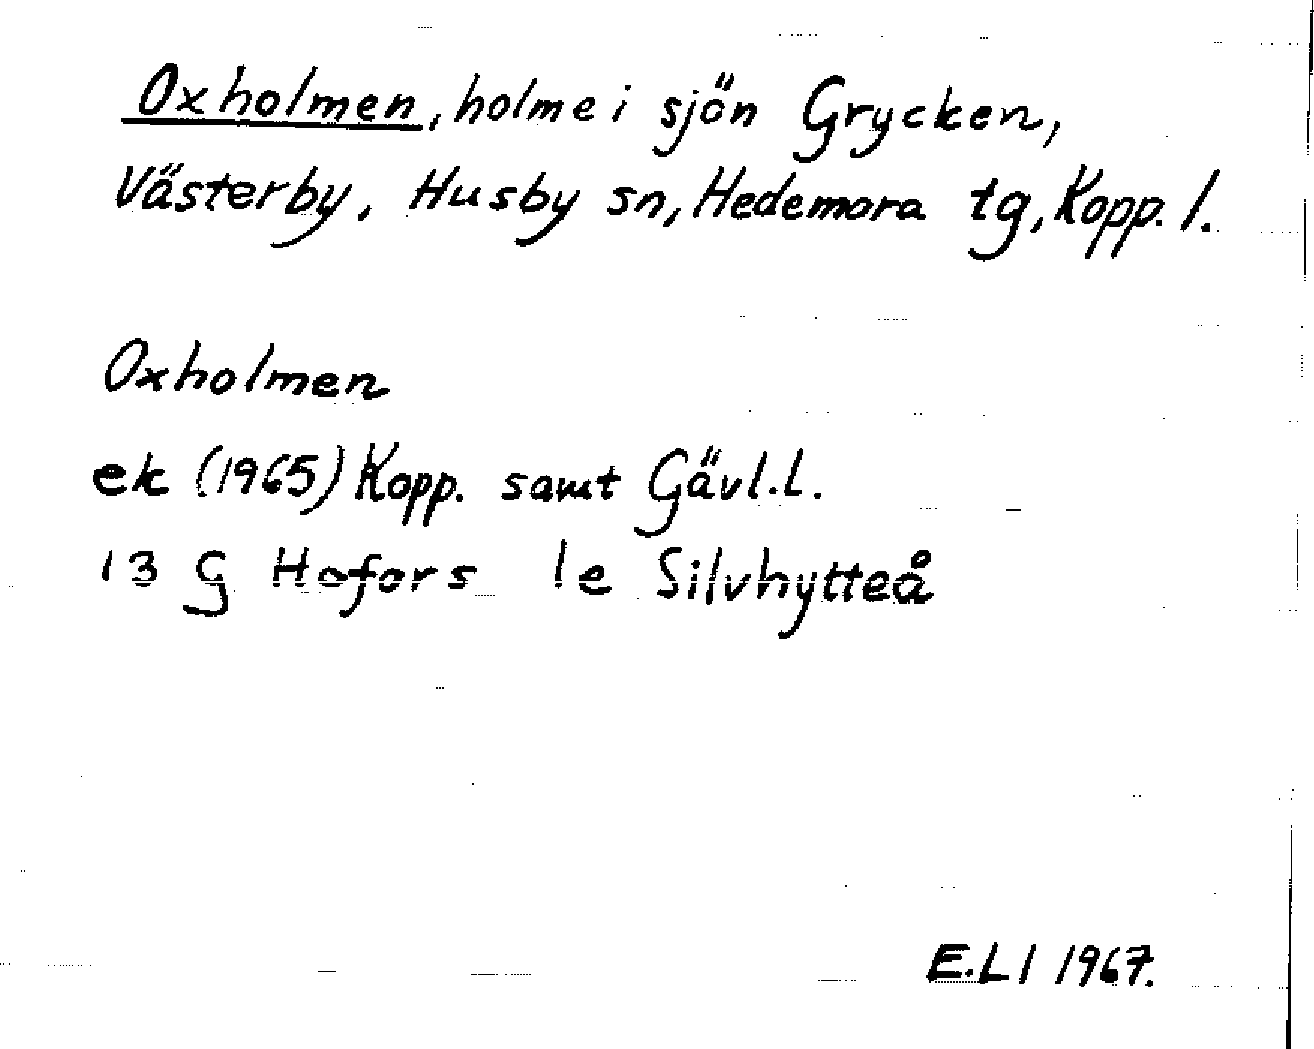 Oxholmen, holme i sjön Grycken,
Västerby, Husby sn, Hedemora tg, Kopp. l.
Oxholmen
ek (1965) Kopp. samt Gävl.l.
13 G Hofors 1e Silvhytteå
E.L I 1967.